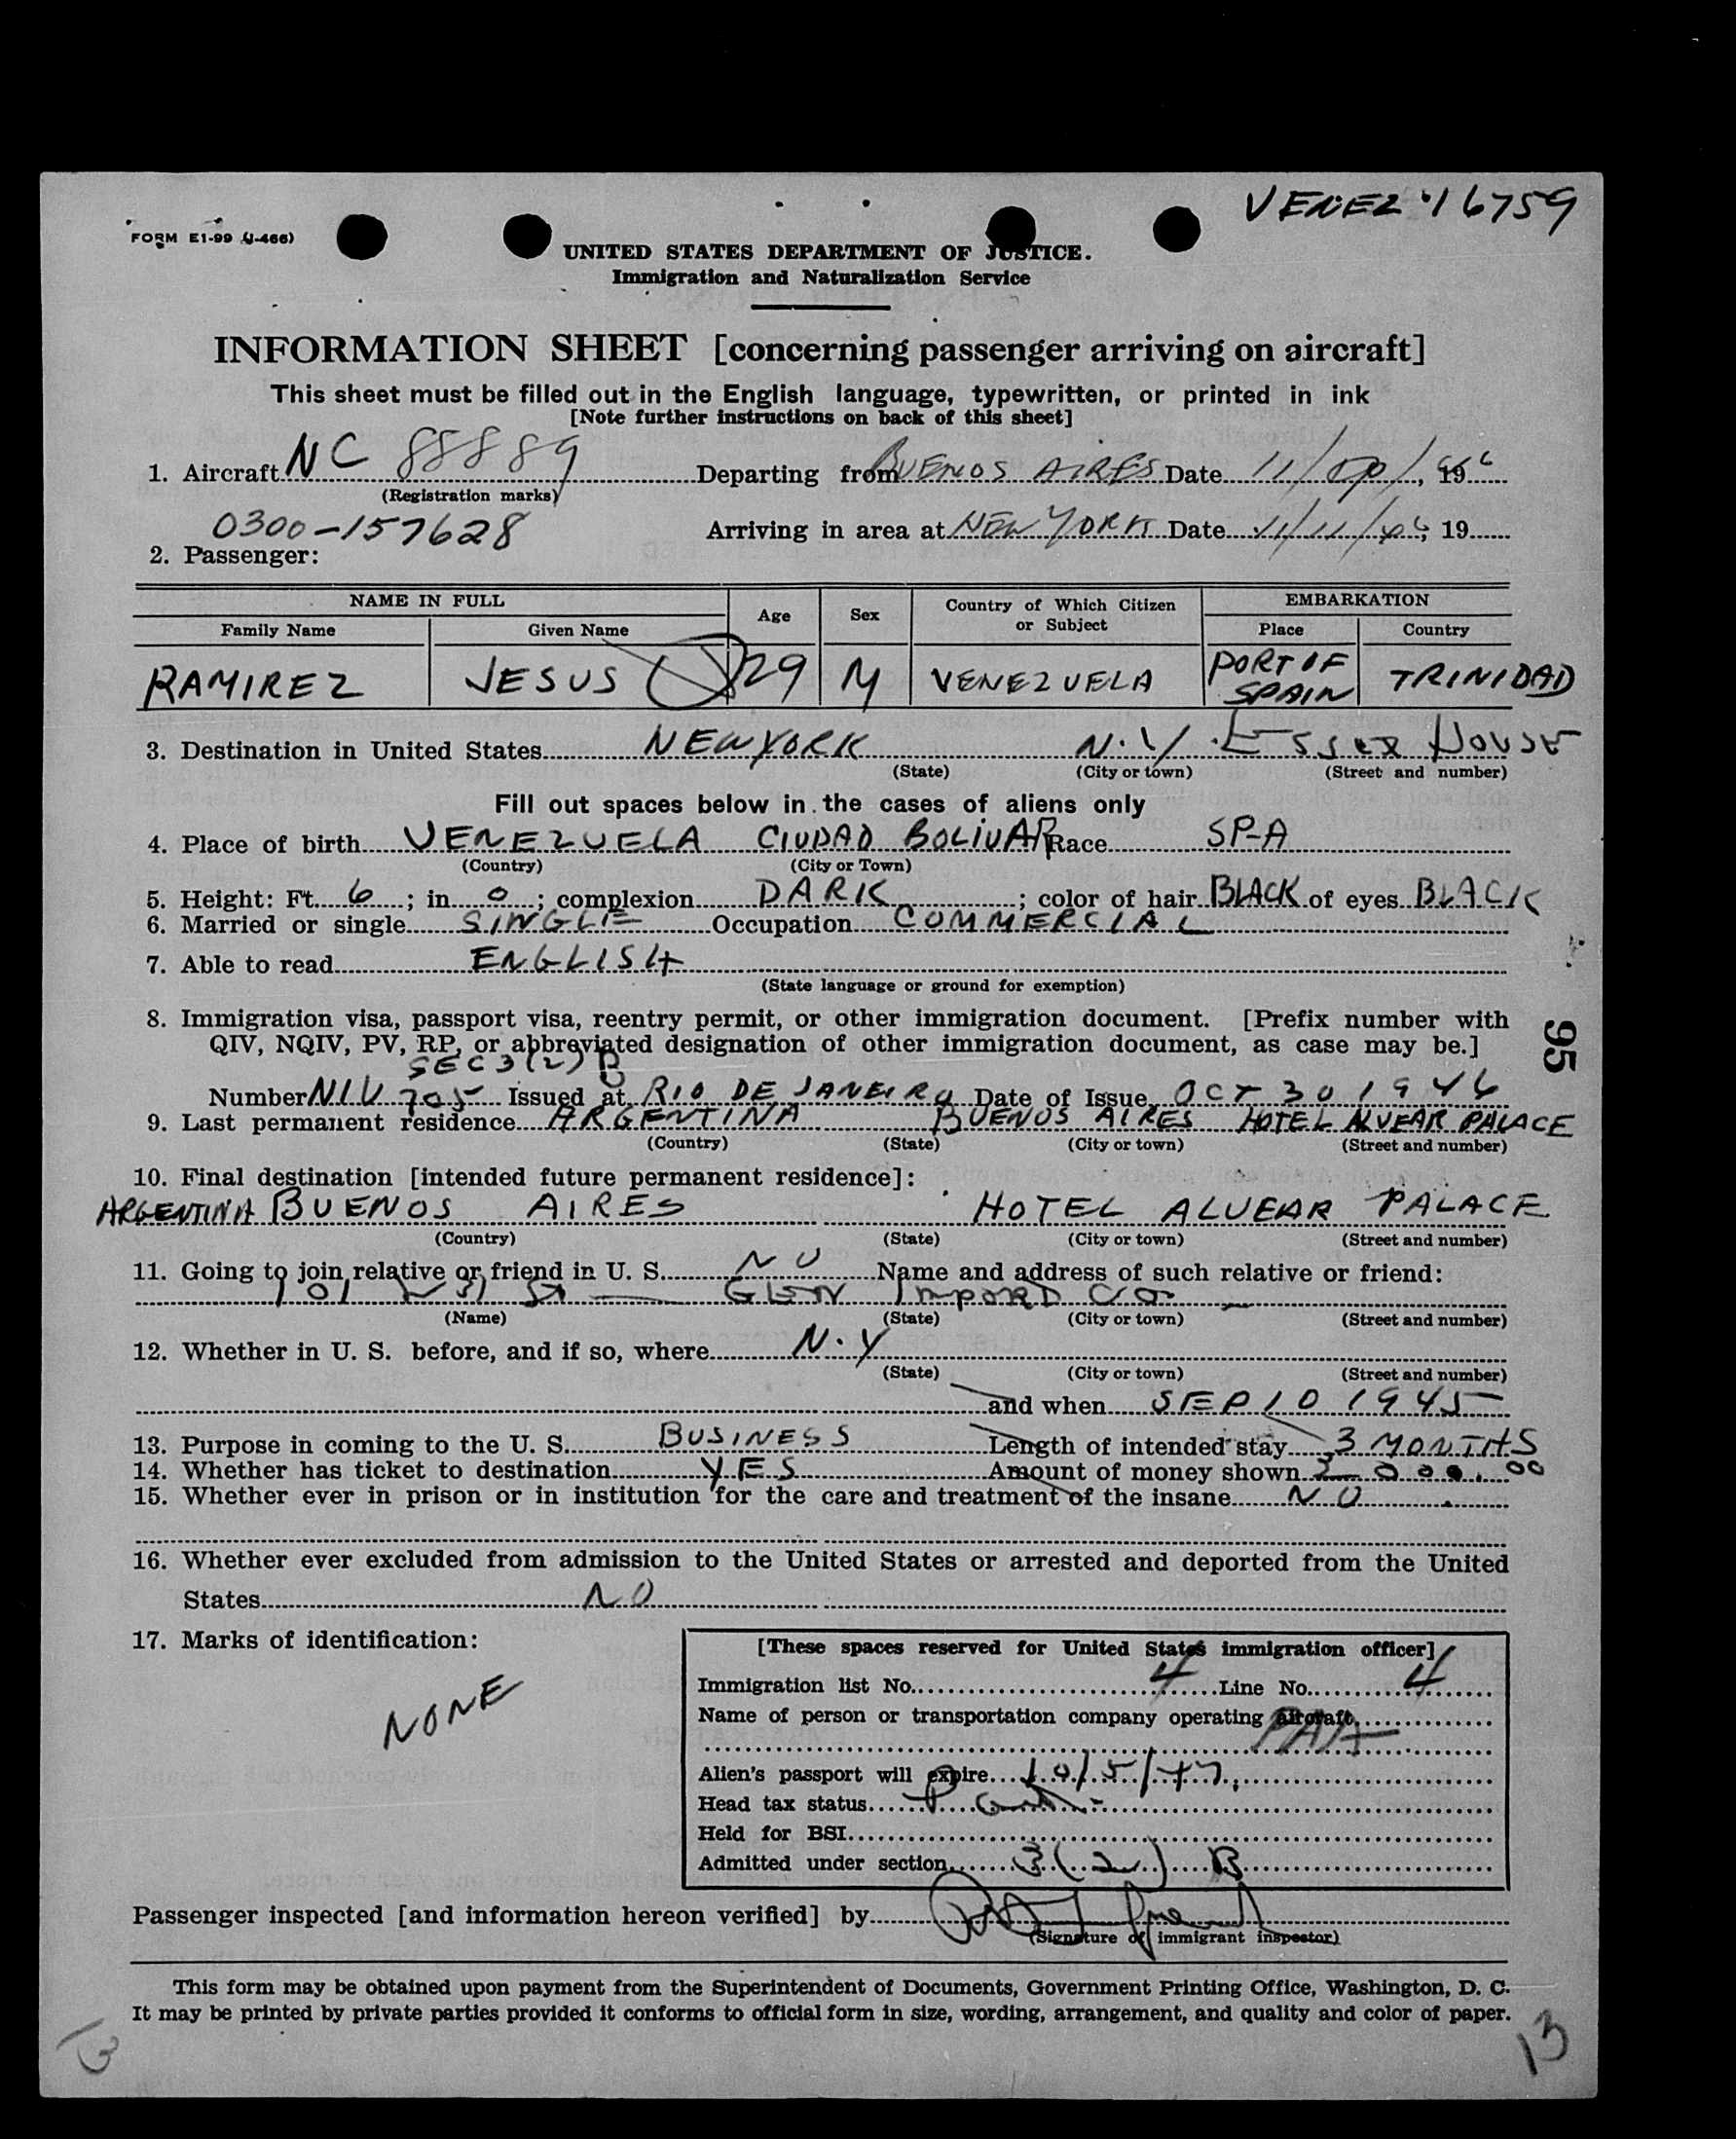 VENEZ 16759
FORM E1-99 (J-466)
UNITED STATES DEPARTMENT OF JUSTICE.
Immigration and Naturalization Service
INFORMATION SHEET [concerning passenger arriving on aircraft]
This sheet must be filled out in the English language, typewritten, or printed in ink
[Note further instructions on back of this sheet]
1. Aircraft NC 88889 Departing from BUENOS AIRES Date 11/ /, 1946
(Registration marks)
0300-157628 Arriving in area at NEW YORK Date 11/11/46, 19
2. Passenger:
NAME IN FULL Age Sex Country of Which Citizen or Subject EMBARKATION
Family Name Given Name Place Country
RAMIREZ JESUS 29 M VENEZUELA PORT OF SPAIN TRINIDAD
3. Destination in United States NEW YORK N.Y. ESSEX HOUSE
(State) (City or town) (Street and number)
Fill out spaces below in the cases of aliens only
4. Place of birth VENEZUELA CIUDAD BOLIVAR Race SP-A
(Country) (City or Town)
5. Height: Ft. 6; in. 0; complexion DARK; color of hair BLACK of eyes BLACK
6. Married or single SINGLE Occupation COMMERCIAL
7. Able to read ENGLISH
(State language or ground for exemption)
8. Immigration visa, passport visa, reentry permit, or other immigration document. [Prefix number with
QIV, NQIV, PV, RP, or abbreviated designation of other immigration document, as case may be.]
SEC 3(2) B
Number NIV 705 Issued at RIO DE JANEIRO Date of Issue OCT 30 1946
9. Last permanent residence ARGENTINA BUENOS AIRES HOTEL ALVEAR PALACE
(Country) (State) (City or town) (Street and number)
95
10. Final destination [intended future permanent residence]:
ARGENTINA BUENOS AIRES HOTEL ALVEAR PALACE
(Country) (State) (City or town) (Street and number)
11. Going to join relative or friend in U. S. NO Name and address of such relative or friend:
101 W 31 ST — GLEN IMPORT CO
(Name) (State) (City or town) (Street and number)
12. Whether in U. S. before, and if so, where N.Y
(State) (City or town) (Street and number)
and when SEP 10 1945
13. Purpose in coming to the U. S. BUSINESS Length of intended stay 3 MONTHS
14. Whether has ticket to destination YES Amount of money shown 000.00
15. Whether ever in prison or in institution for the care and treatment of the insane NO
16. Whether ever excluded from admission to the United States or arrested and deported from the United
States NO
17. Marks of identification:
NONE
[These spaces reserved for United States immigration officer]
Immigration list No. 4 Line No. 4
Name of person or transportation company operating aircraft
PAA
Alien's passport will expire 10/5/47
Head tax status
Held for BSI
Admitted under section 3(2) B
Passenger inspected [and information hereon verified] by
(Signature of immigrant inspector)
This form may be obtained upon payment from the Superintendent of Documents, Government Printing Office, Washington, D. C.
It may be printed by private parties provided it conforms to official form in size, wording, arrangement, and quality and color of paper.
13
13